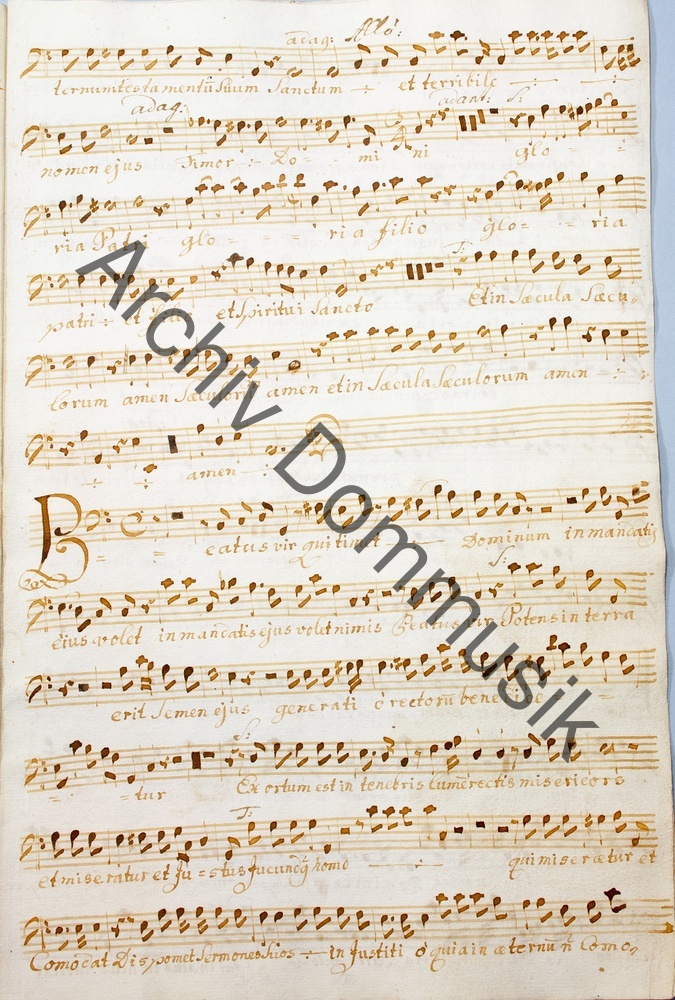 adag: Allo:
ternum testamentū Suum Sanctum et terribile
adag: adant: S:
nomen ejus Timor Do = mi ni glo =
ria Patri glo = = = ria filio glo = = ria
T:
patri et filio et Spiritui Sancto Et in Sæcula Sæcu-
lorum amen Sæculorū amen et in Sæcula Sæculorum amen
amen
Beatus vir qui timet Dominum in mandatis
S:
ejus volet in mandatis ejus volet nimis Beatus vir Potens in terra
erit Semen ejus generati o rectorū benedice =
S:
= = tur Exortum est in tenebris lumē rectis misericors
T:
et miserator et Ju = stus Jucundq homo qui miseretur et
Comodat Disponet Sermones Suos in Justiti o quia in æternū n̄ Como-
Archiv Dommusik